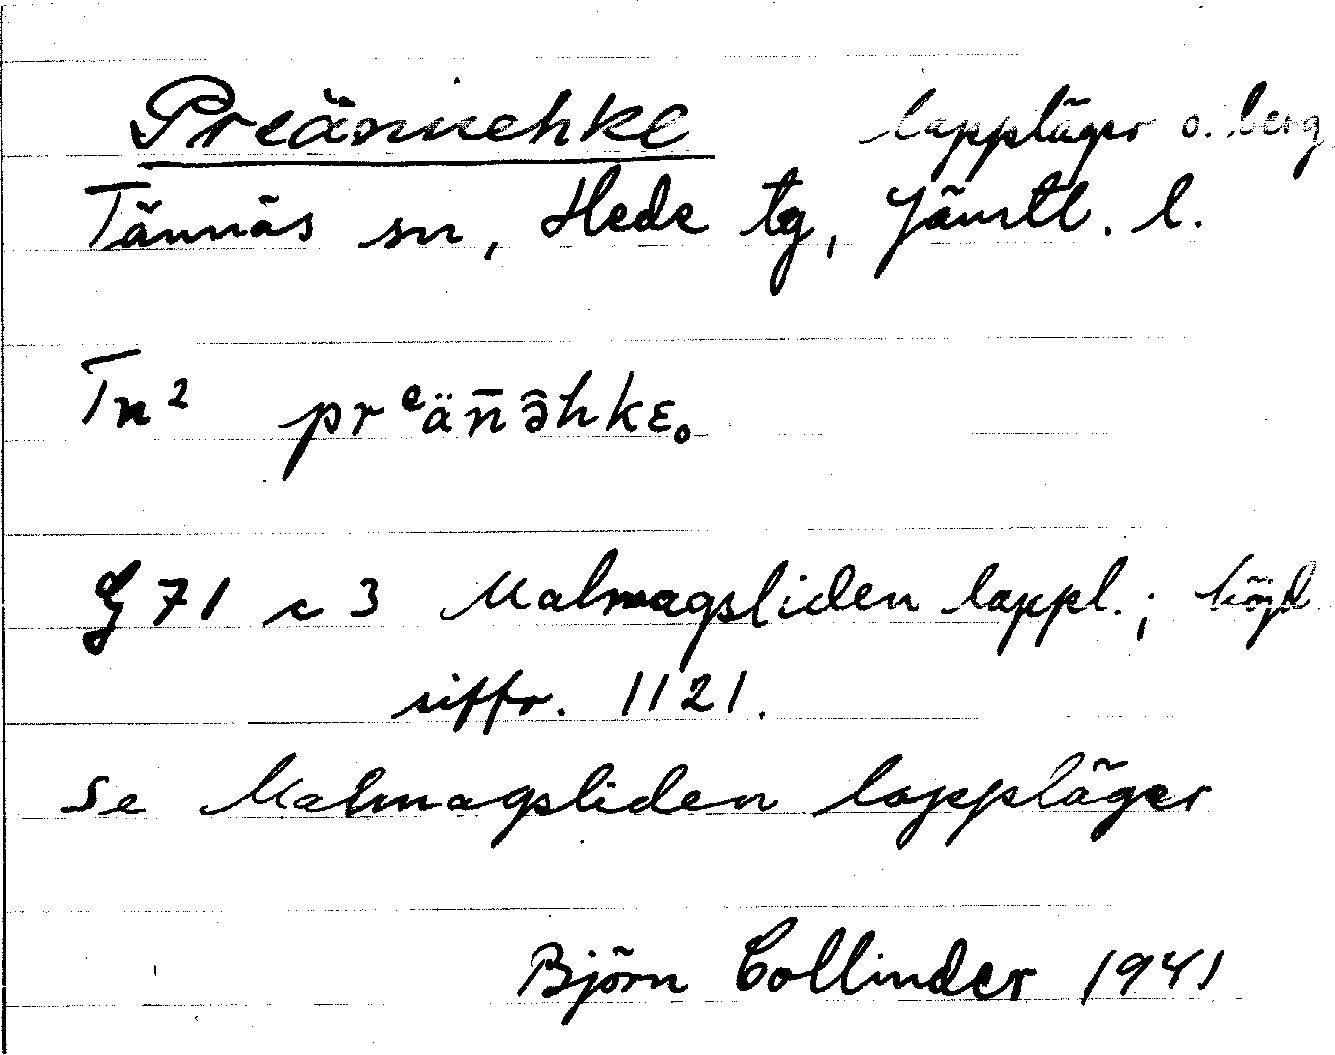 Preännehke lappläger o. berg
Tännäs sn, Hede tg, Jämtl. l.
Tn² prᵉän̄ə̂hkɛ。
G 71 c 3 Malmagsliden lappl.; höjd
siffr. 1121.
Se Malmagsliden lappläger
Björn Collinder 1941